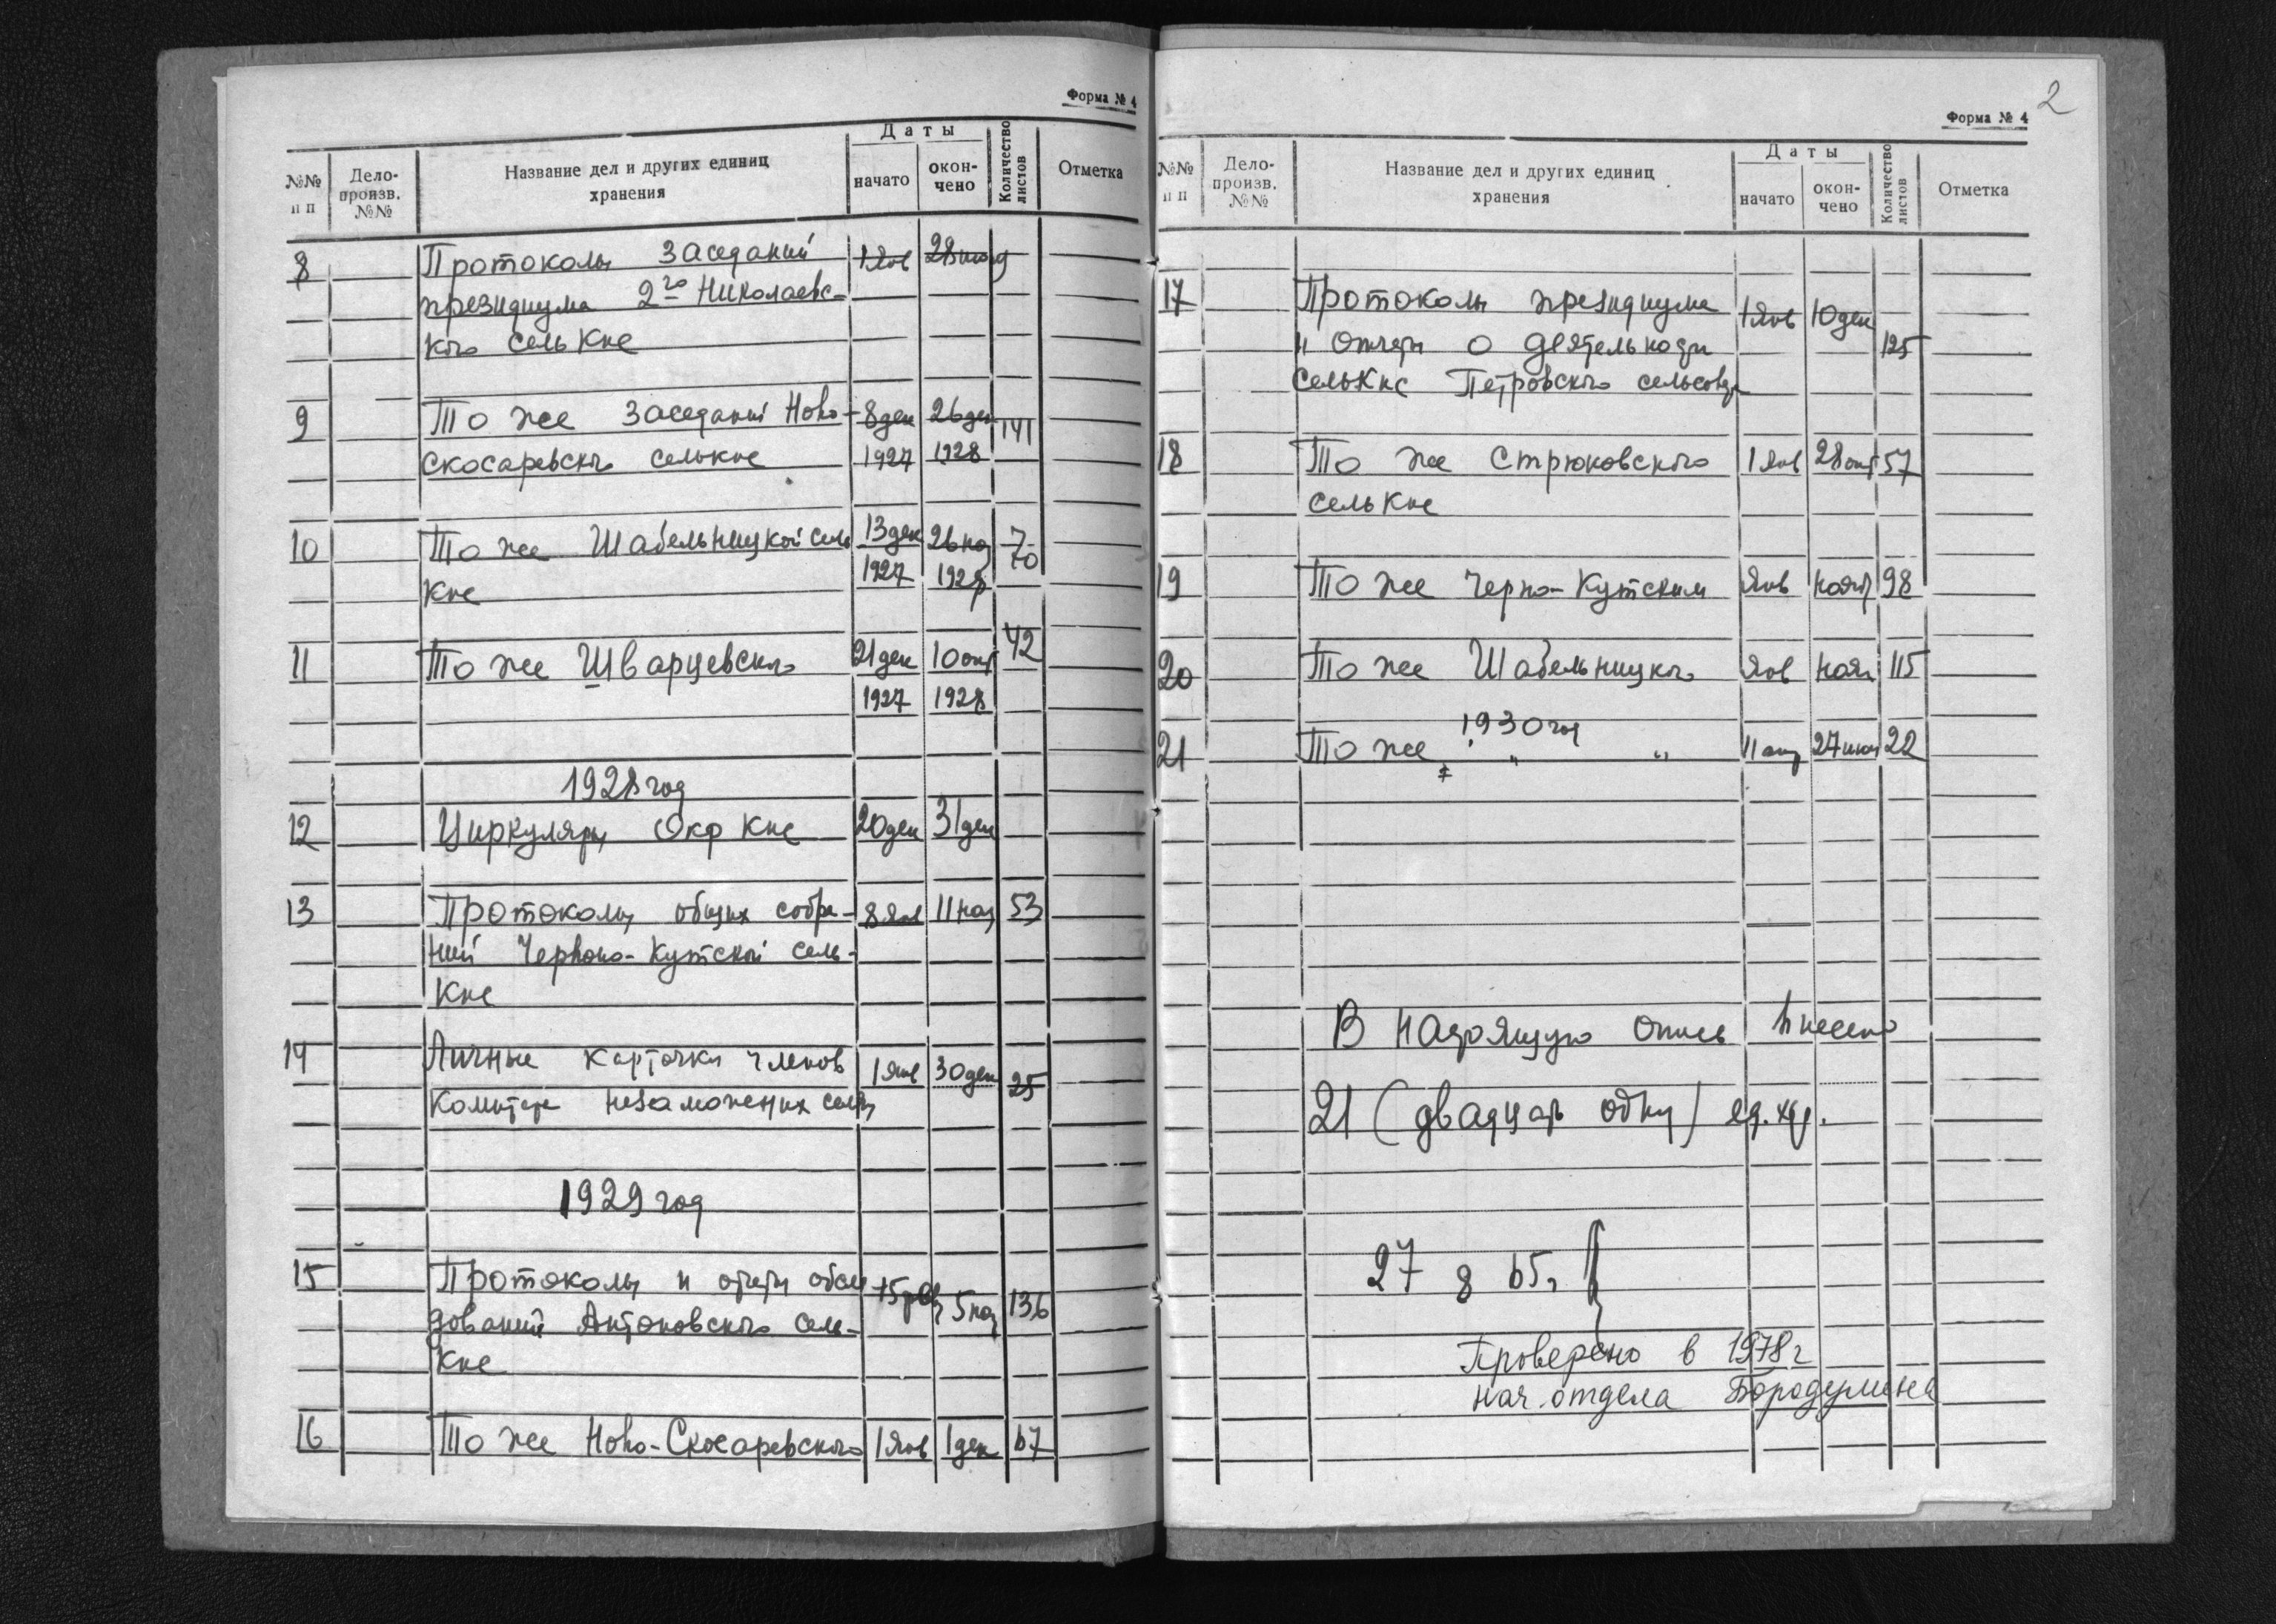 Форма № 4
№№ п п
Дело-произв. №№
Название дел и других единиц хранения
Даты
начато
окон-чено
Количество листов
Отметка
8 Протоколы заседаний 1 янв 9
президиума 2го Николаевс-
кого сельКНС
9 То же заседаний Ново- 8 дек 26 дек 141
скосаревского селькнс 1927 1928
10 То же Шабельницкой сель 13 дек 26 ноя 70
КНС 1927 1928
11 То же Шварцевского 21 дек 10 окт 42
1927 1928
1928 год
12 Циркуляры Окр КНС 20 дек 31 дек
13 Протоколы общих собра- 8 янв 11 ноя 53
ний Червоно-Кутской сель-
КНС
14 Личные карточки членов 1 янв 30 дек 25
Комитета незаможених селян
1929 год
15 Протоколы и отчеты обсле 5 ноя 136
дований Антоновского сель-
КНС
16 То же Ново-Скосаревского 1 янв 1 дек 67
2
Форма № 4
№№ п п
Дело-произв. №№
Название дел и других единиц хранения
Даты
начато
окон-чено
Количество листов
Отметка
17 Протоколы президиума 1 янв 10 дек 125
и отчеты о деятельности
сельКНС Петровского сельсовета
18 То же Стрюковского 1 янв 28 окт 57
сельКНС
19 То же Черно-Кутским янв нояб 98
20 То же Шабельницкого янв ноя 115
1930 год
21 То же " " 11 апр 27 22
В настоящую опись внесено
21 (двадцать одну) ед. хр.
27 8 65г
Проверено в 1978 г
нач. отдела Бородулина